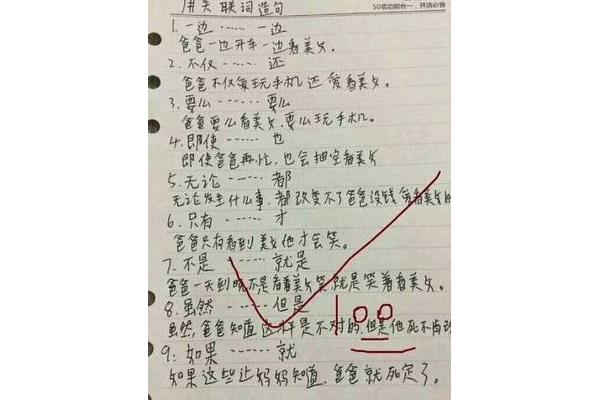 用关联词造句
50项功能合一,开店必备
1.一边……一边
爸爸一边开车一边看美女。
2.不仅……还
爸爸不仅爱玩手机还爱看美女。
3.要么……要么
爸爸要么看美女,要么玩手机。
4.即使……也
即使爸爸再忙,也会抽空看美女
5.无论……都
无论发生什么事,都改变不了爸爸没钱爱看美女的
6.只有……才
爸爸只有看到美女他才会笑。
7.不是……就是
爸爸一天到晚不是看着美女笑就是笑着看美女。
8.虽然……但是
虽然,爸爸知道这样是不对的,但是他死不肯改
100
9.如果……就
如果这些让妈妈知道,爸爸就死定了。